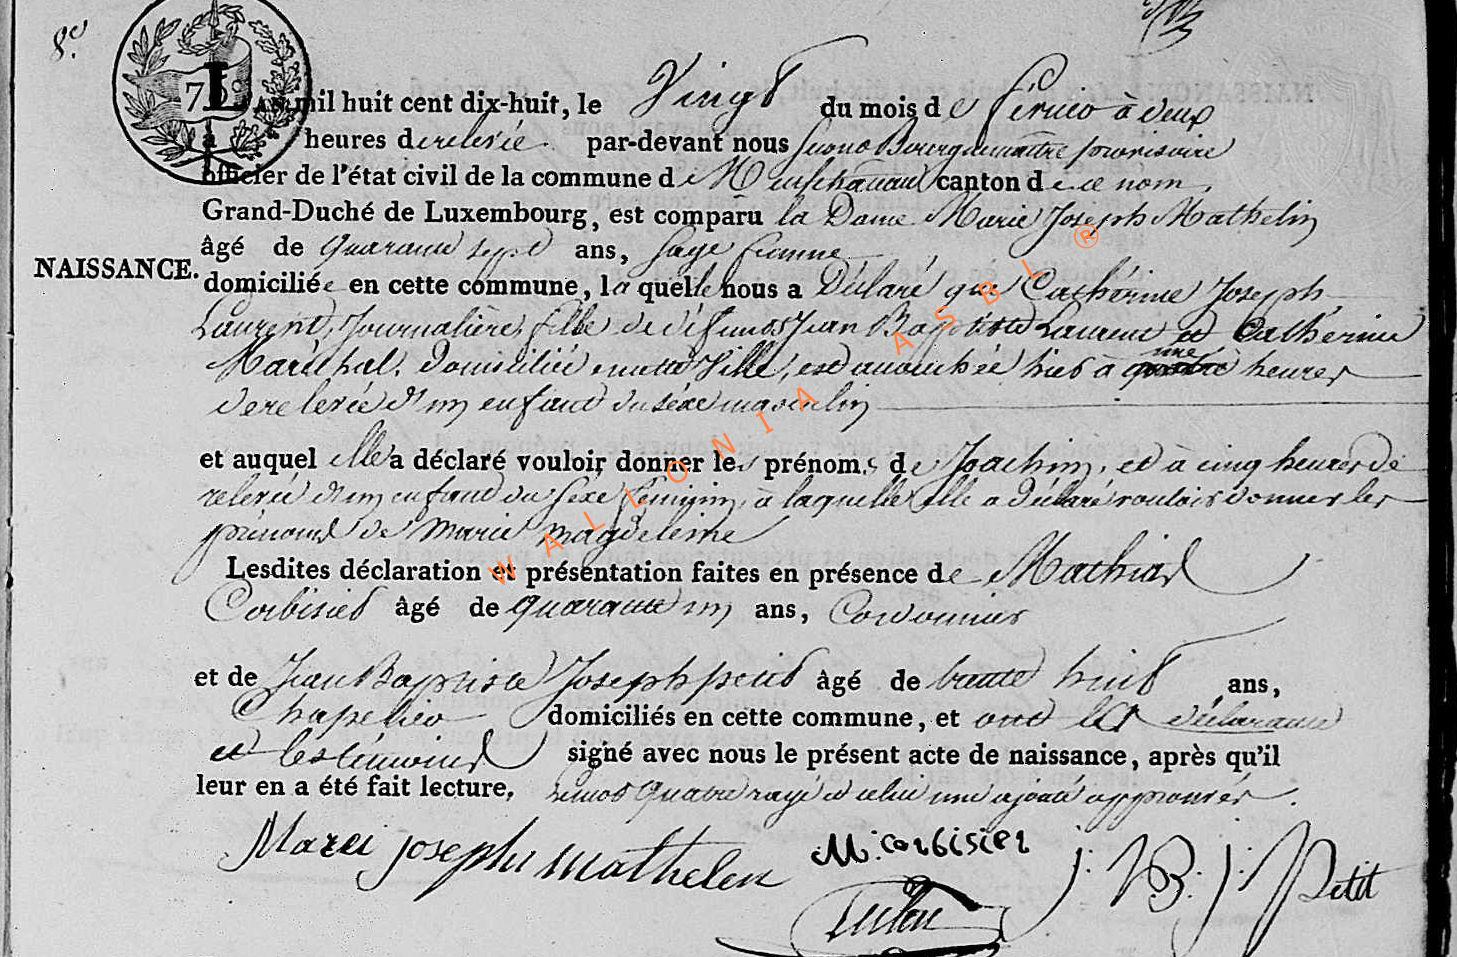 8e
L'AN mil huit cent dix-huit, le Vingt du mois de février à deux
heures de relevée par-devant nous Bourguemaitre provisoire
officier de l'état civil de la commune de Neufchateau canton de ce nom,
Grand-Duché de Luxembourg, est comparu la Dame Marie Joseph Mathelin
âgé de quarante sept ans, sage femme
NAISSANCE.
domiciliée en cette commune, la quelle nous a Déclaré que Cathérine Joseph
Laurent, Journalière, fille de défunts Jean Baptiste Laurent et Cathérine
Maréchal, Domiciliée en cette Ville, est accouchée hier à quatre une heures
de relevée d'un enfant du séxe masculin
et auquel elle a déclaré vouloir donner les prénoms de Joachim, et à cinq heures de
relevée d'un enfant du sexe féminin, à laquelle elle a déclaré vouloir donner les
prénoms de Marie Magdeleine
Lesdites déclaration et présentation faites en présence de Mathias
Corbisier âgé de quarante un ans, Cordonnier
et de Jean Baptiste Joseph petit âgé de trente huit ans,
Chapelier domiciliés en cette commune, et ont les déclarante
et les témoins signé avec nous le présent acte de naissance, après qu'il
leur en a été fait lecture, Le mot quatre rayé et celui une ajouté approuvés.
Marei joseph mathelen M. corbisier J. B. j. Petit
WALLONIA ASBL ®